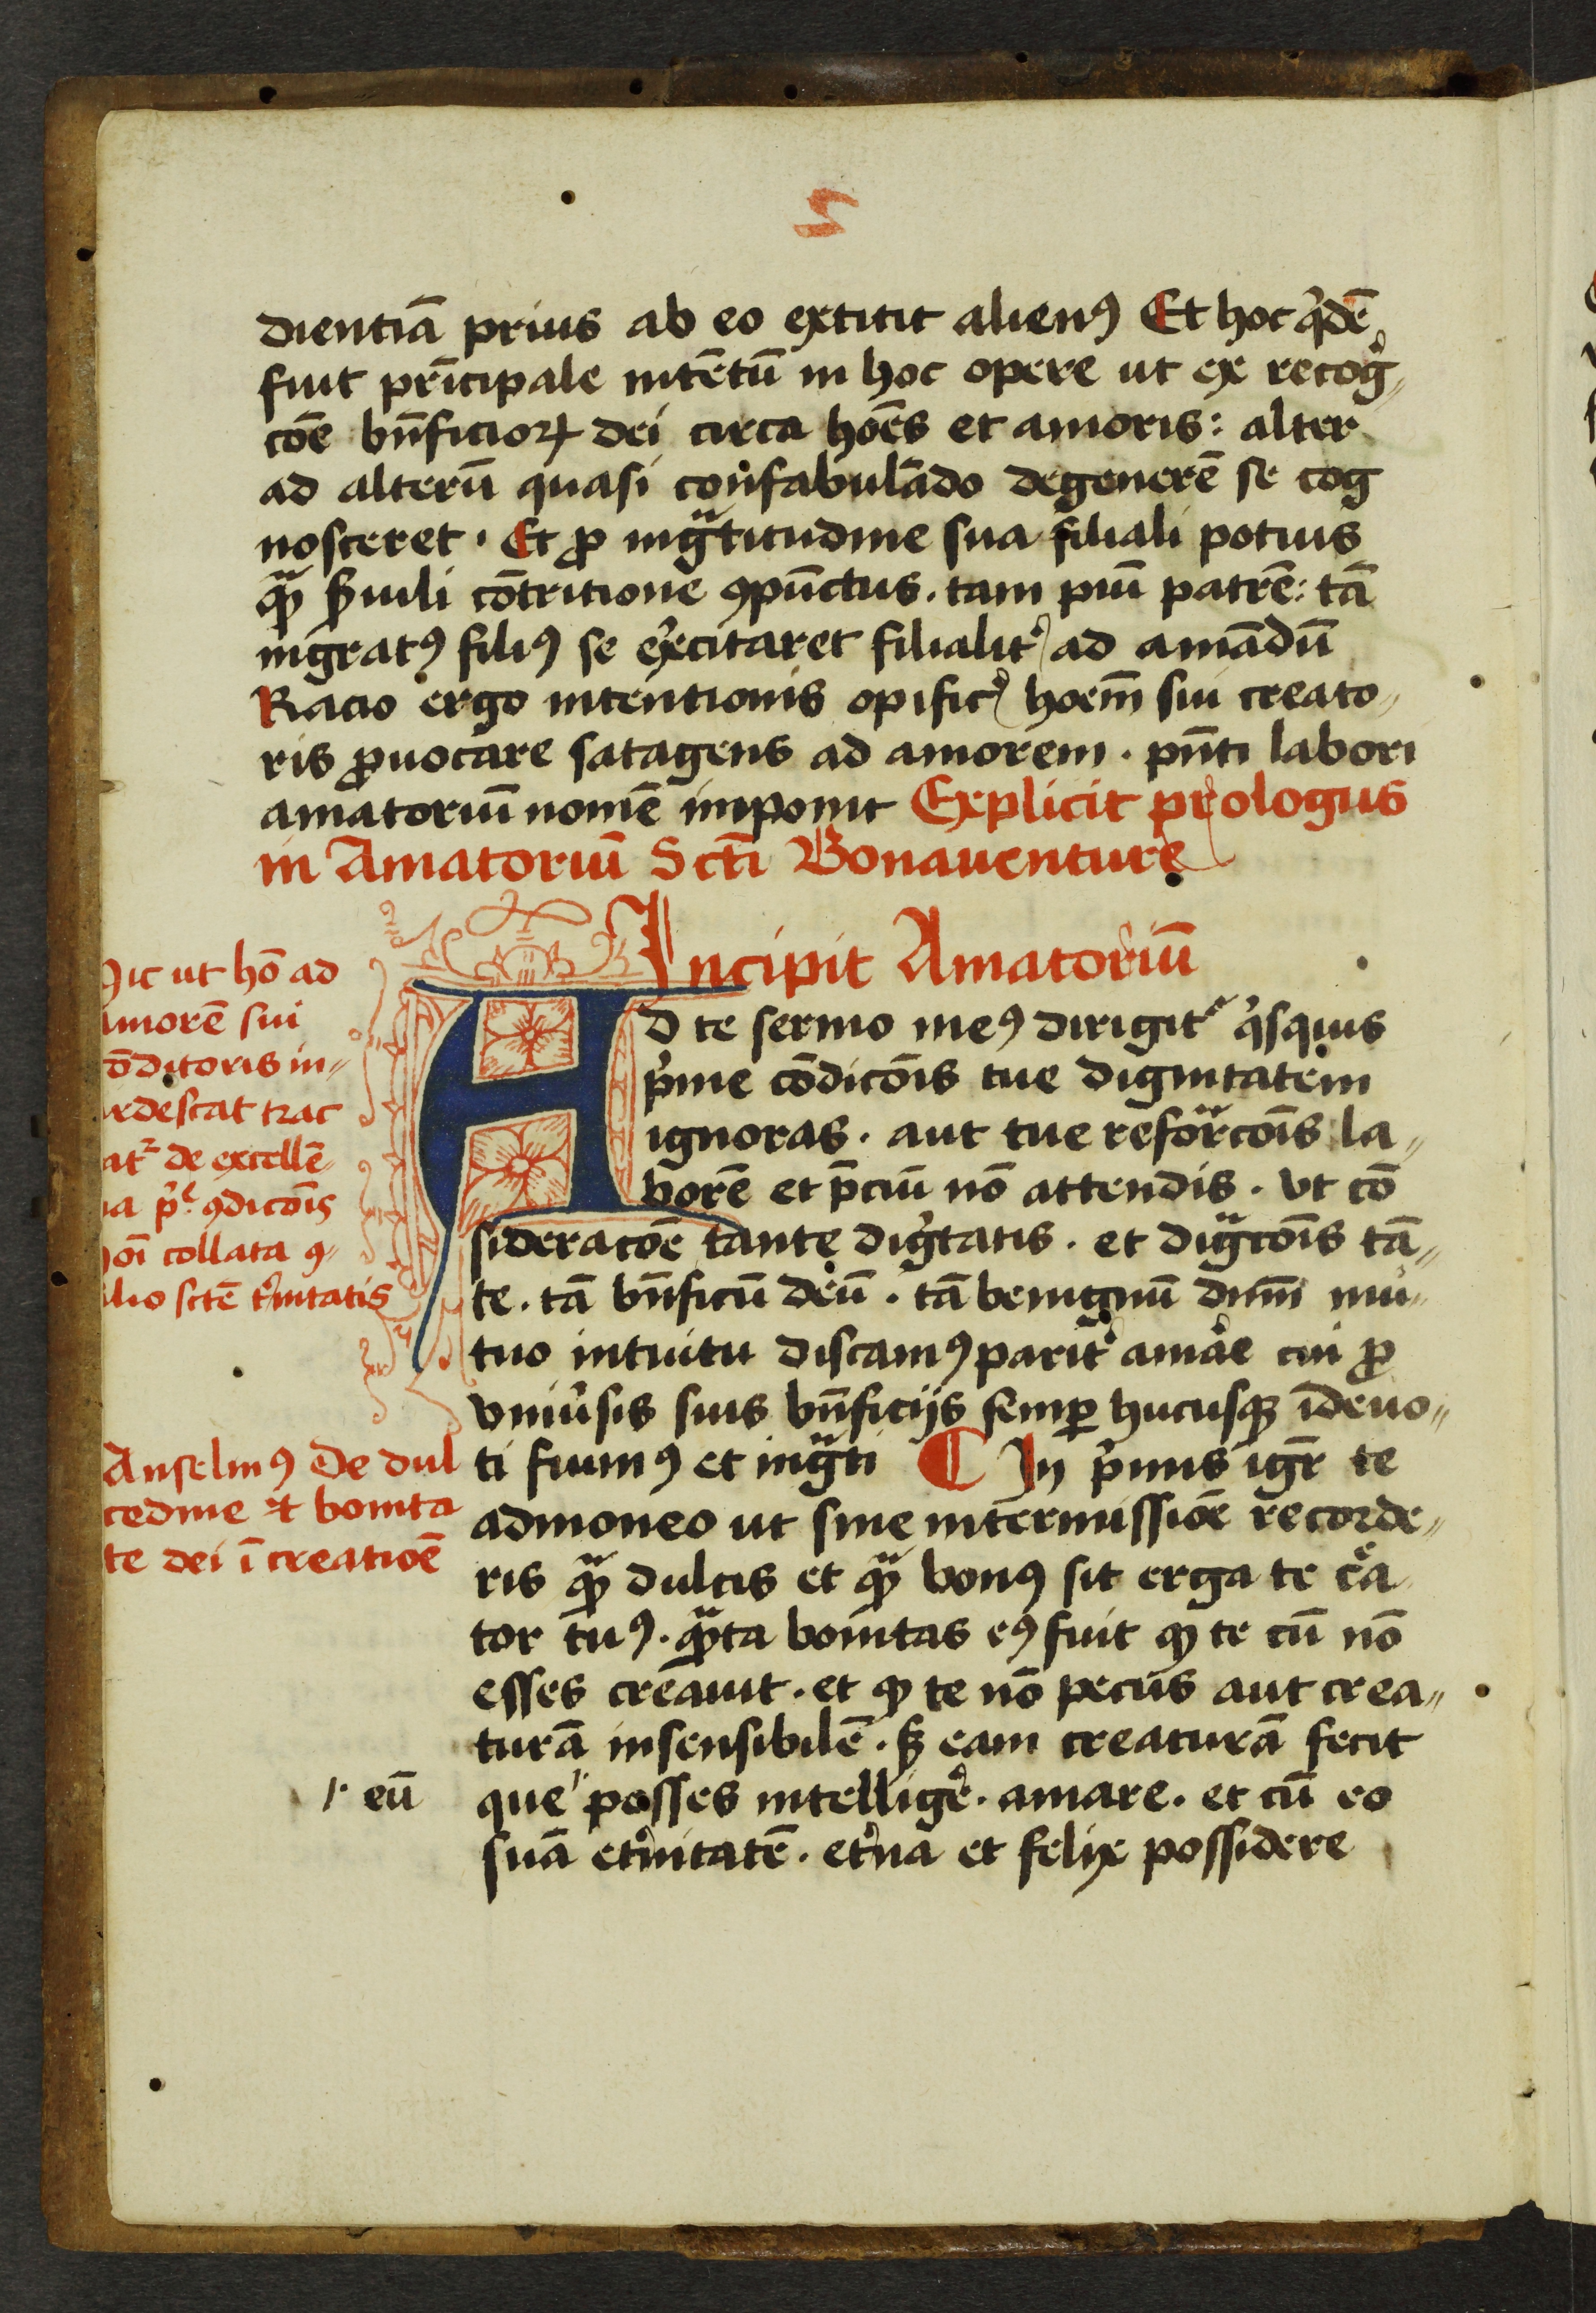 dientiā prius ab eo extitit alienꝰ Et hoc qͥdē
fuit prīcipale intētū in hoc opere ut ex recogͥ„
cōe bn̄ficioꝝ dei circa hoēs et amoris: alter
ad alterū quasi confabulādo degenerē se cog
nosceret. Et ꝓ ingᵃtitudine sua filiali potius
qᵃꝫ ẜuili cōtritione ꝯpūctus. tam piū patrē: tā
ingratꝰ filiꝰ se exͨitaret filialit᷑ ad amādū
Racio ergo intentionis opific᷑ hoēm sui creato„
ris ꝓuocare satagens ad amorem. pn̄ti labori
amatoriū nomē imponit Explicit prologus
in Amatoriū Scti Bonauenture
Incipit Amatoriū
Ad te sermo meꝰ dirigit᷑ qͥsquis
pͥme cōdicōis tue dignitatem
ignoras. aut tue reforᵃcōis la„
borē et p̄ciū nō attendis. vt cō
sideracōe tante digͥtatis. et digᵃcōis tā„
te. tā bn̄ficū deū. tā benignū dnm̄ mu„
tuo intuitu discamꝰ parit᷑ amar̄e cui ꝓ
vniu᷑sis suis bn̄ficijs semꝑ hucusqꝫ īdeuo„
ti fuimꝰ et ingᵃti In pͥmis igr̄ te
admoneo ut sine intermissiōe recorde„
ris qᵃꝫ dulcis et qᵃꝫ bonꝰ sit erga te cͤa
tor tuꝰ. qᵃꝫta bonitas eꝰ fuit ꝙ te cū nō
esses creauit. et ꝙ te nō pecus aut crea„
turā insensibilē. sꝫ eam creaturā fecit
que posses intelligē. amare. et cū eo
suā et᷑nitatē. et᷑na et felix possidere
Hic ut hō ad
amorē sui
cōditoris in„
ardescat trac
tat᷑ de excellē„
cia pͥᵉ ꝯdicōis
hoī collata ꝯ„
silio sctē tͥnitatis
Anselmꝰ De dul
cedine et bonita
te dei ī creatiōe
eū